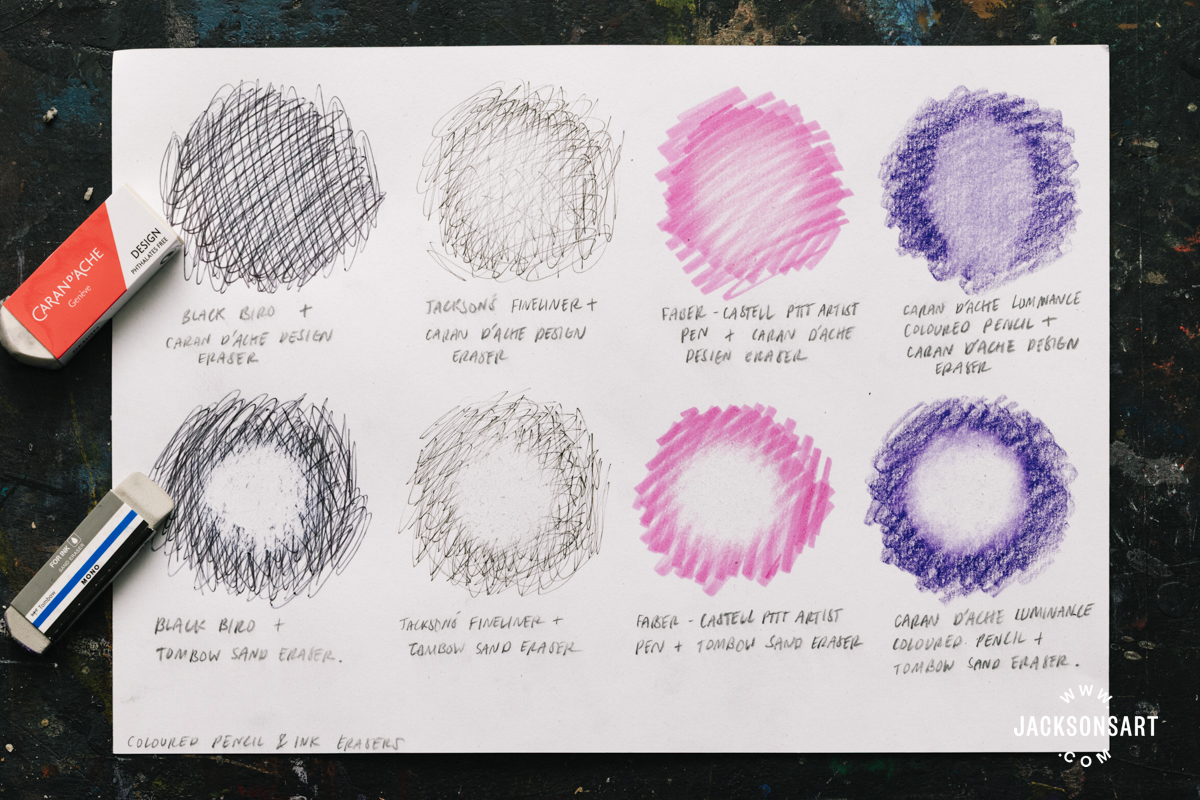 BLACK BIRO +
CARAN D'ACHE DESIGN
ERASER
JACKSON'S FINELINER +
CARAN D'ACHE DESIGN
ERASER
FABER-CASTELL PITT ARTIST
PEN + CARAN D'ACHE
DESIGN ERASER
CARAN D'ACHE LUMINANCE
COLOURED PENCIL +
CARAN D'ACHE DESIGN
ERASER
CARAN D'ACHE
Genève
DESIGN
PHTHALATES FREE
BLACK BIRO +
TOMBOW SAND ERASER.
JACKSON'S FINELINER +
TOMBOW SAND ERASER
FABER-CASTELL PITT ARTIST
PEN + TOMBOW SAND ERASER
CARAN D'ACHE LUMINANCE
COLOURED PENCIL +
TOMBOW SAND ERASER.
FOR INK
SAND ERASER
MONO
Tombow
COLOURED PENCIL & INK ERASERS
WWW
JACKSONSART
.COM